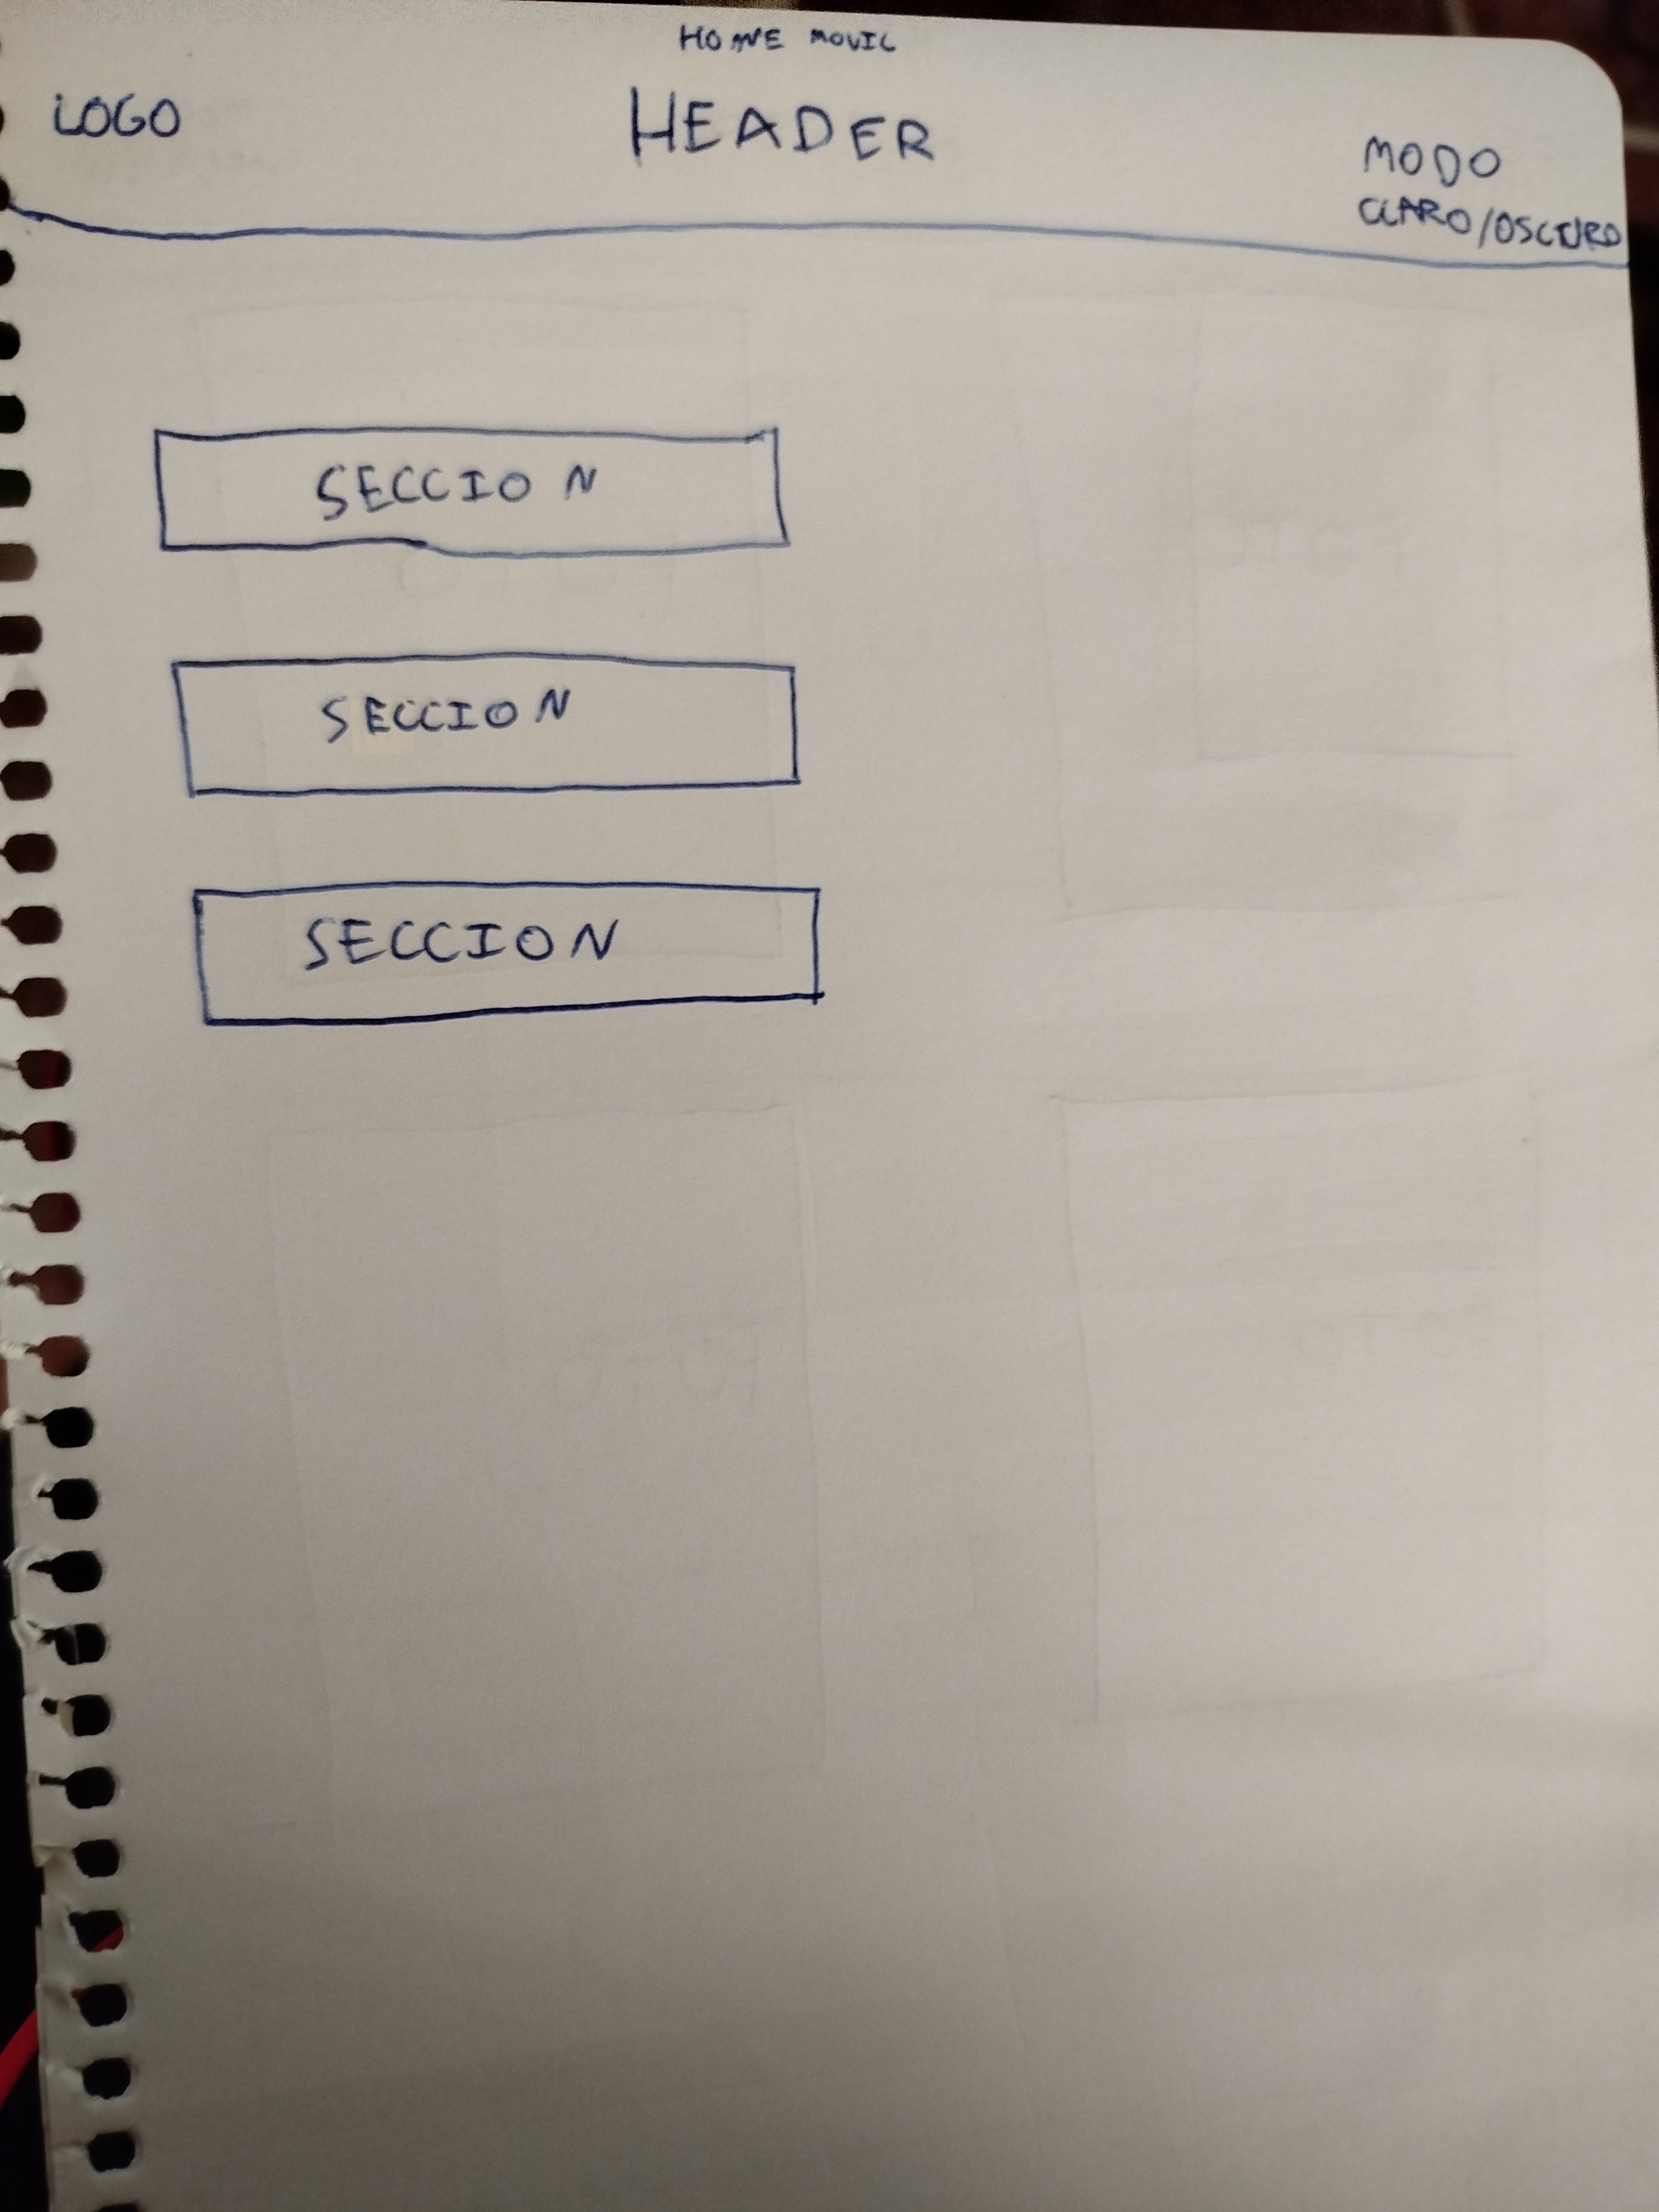 HOME MOVIL
LOGO
HEADER
MODO
CLARO/OSCURO
SECCION
SECCION
SECCION